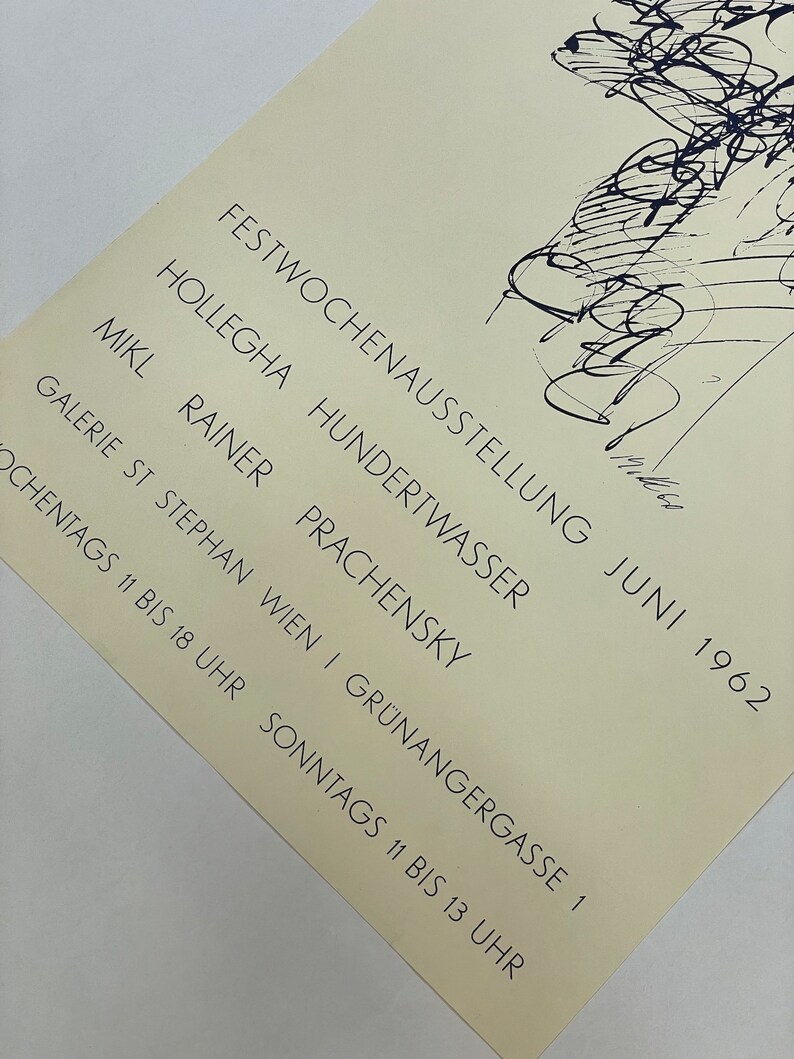 Mikl 60
FESTWOCHENAUSSTELLUNG JUNI 1962
HOLLEGHA HUNDERTWASSER
MIKL RAINER PRACHENSKY
GALERIE ST STEPHAN WIEN I GRÜNANGERGASSE 1
OCHENTAGS 11 BIS 18 UHR SONNTAGS 11 BIS 13 UHR